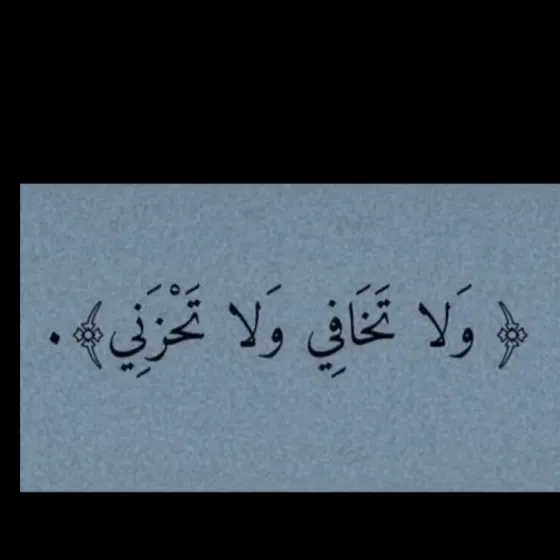 ﴿ وَلا تَخَافِي وَلا تَحْزَنِي ﴾ .